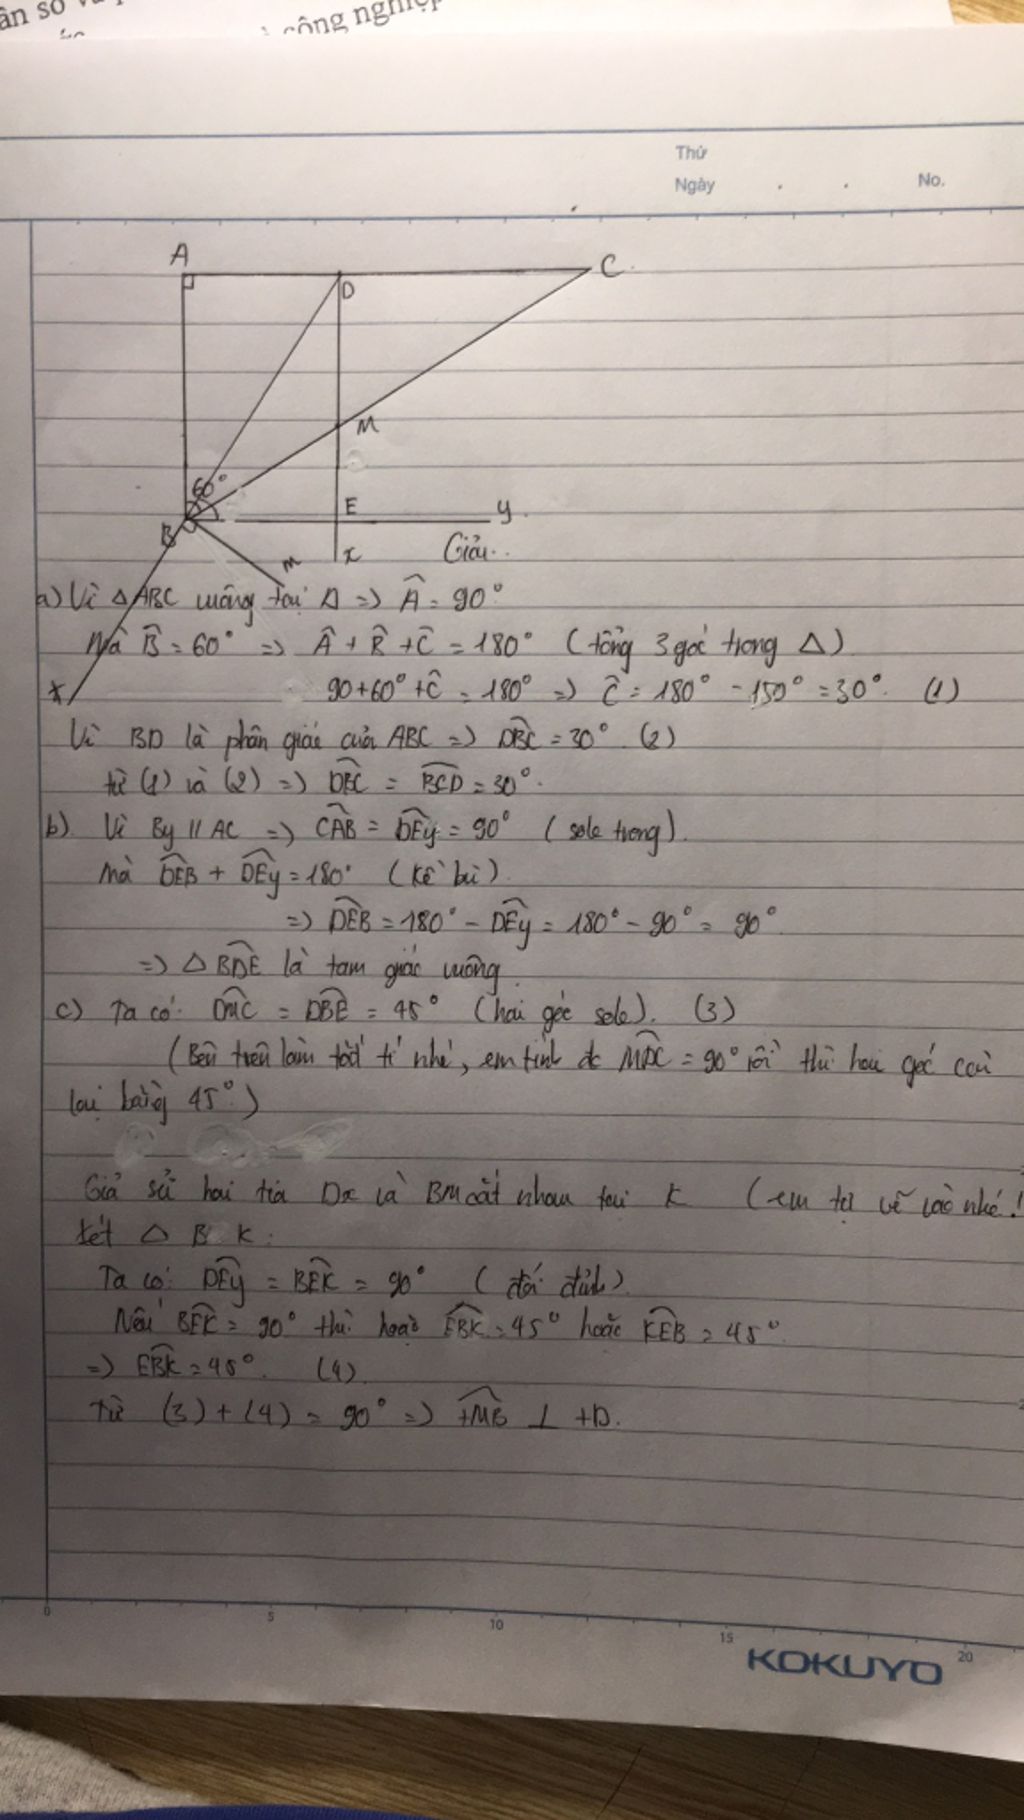 công nghiệp
Thứ
Ngày . . No.
A
D
C
M
60°
E
y
B
m
x
Giải..
a) Vì △ABC vuông tại A => Â = 90°
Mà B̂ = 60° => Â + B̂ + Ĉ = 180° (tổng 3 góc trong △)
x
90+60°+Ĉ = 180° => Ĉ = 180° - 150° = 30°. (1)
Vì BD là phân giác của ABC => DBC = 30°. (2)
từ (1) và (2) => DBC = BCD = 30°.
b). Vì By // AC => CAB = DEy = 90° (sole trong).
mà DEB + DEy = 180° (kề bù)
=> DEB = 180° - DEy = 180° - 90° = 90°
=> △ BDE là tam giác vuông
c) Ta có: DMC = DBE = 45° (hai góc sole). (3)
(Bên trên làm tắt tí nhé, em tính đc MDC = 90° rồi thì hai góc còn
lại bằng 45°.)
Giả sử hai tia Dx và BM cắt nhau tại K (em tự vẽ vào nhé!
Xét △ B K:
Ta có: DEy = BEK = 90° (đối đỉnh)
Nếu BEK = 90° thì hoặc EBK = 45° hoặc KEB = 45°
=> EBK = 45°. (4)
Từ (3) + (4) = 90° => +MB ⊥ +D.
0 5 10 15 20
KOKUYO